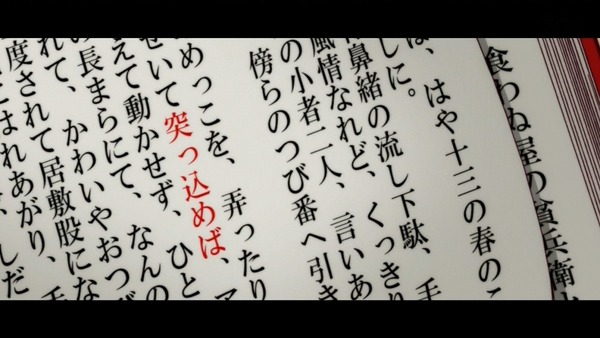 食わぬ屋の貧兵衛
は、はや十三の春のこ
しに。
鼻緒の流し下駄、手
風情なれど、くっきり
の小者二人、言いあ
傍らのつび番へ引き
めっこを、弄ったり
せいて突っ込めば、ア
えて動かせず、ひと
の長まらにて、なんの
れて、かわいやおつび
度されて居敷股にな
はれあがり、手
しだ